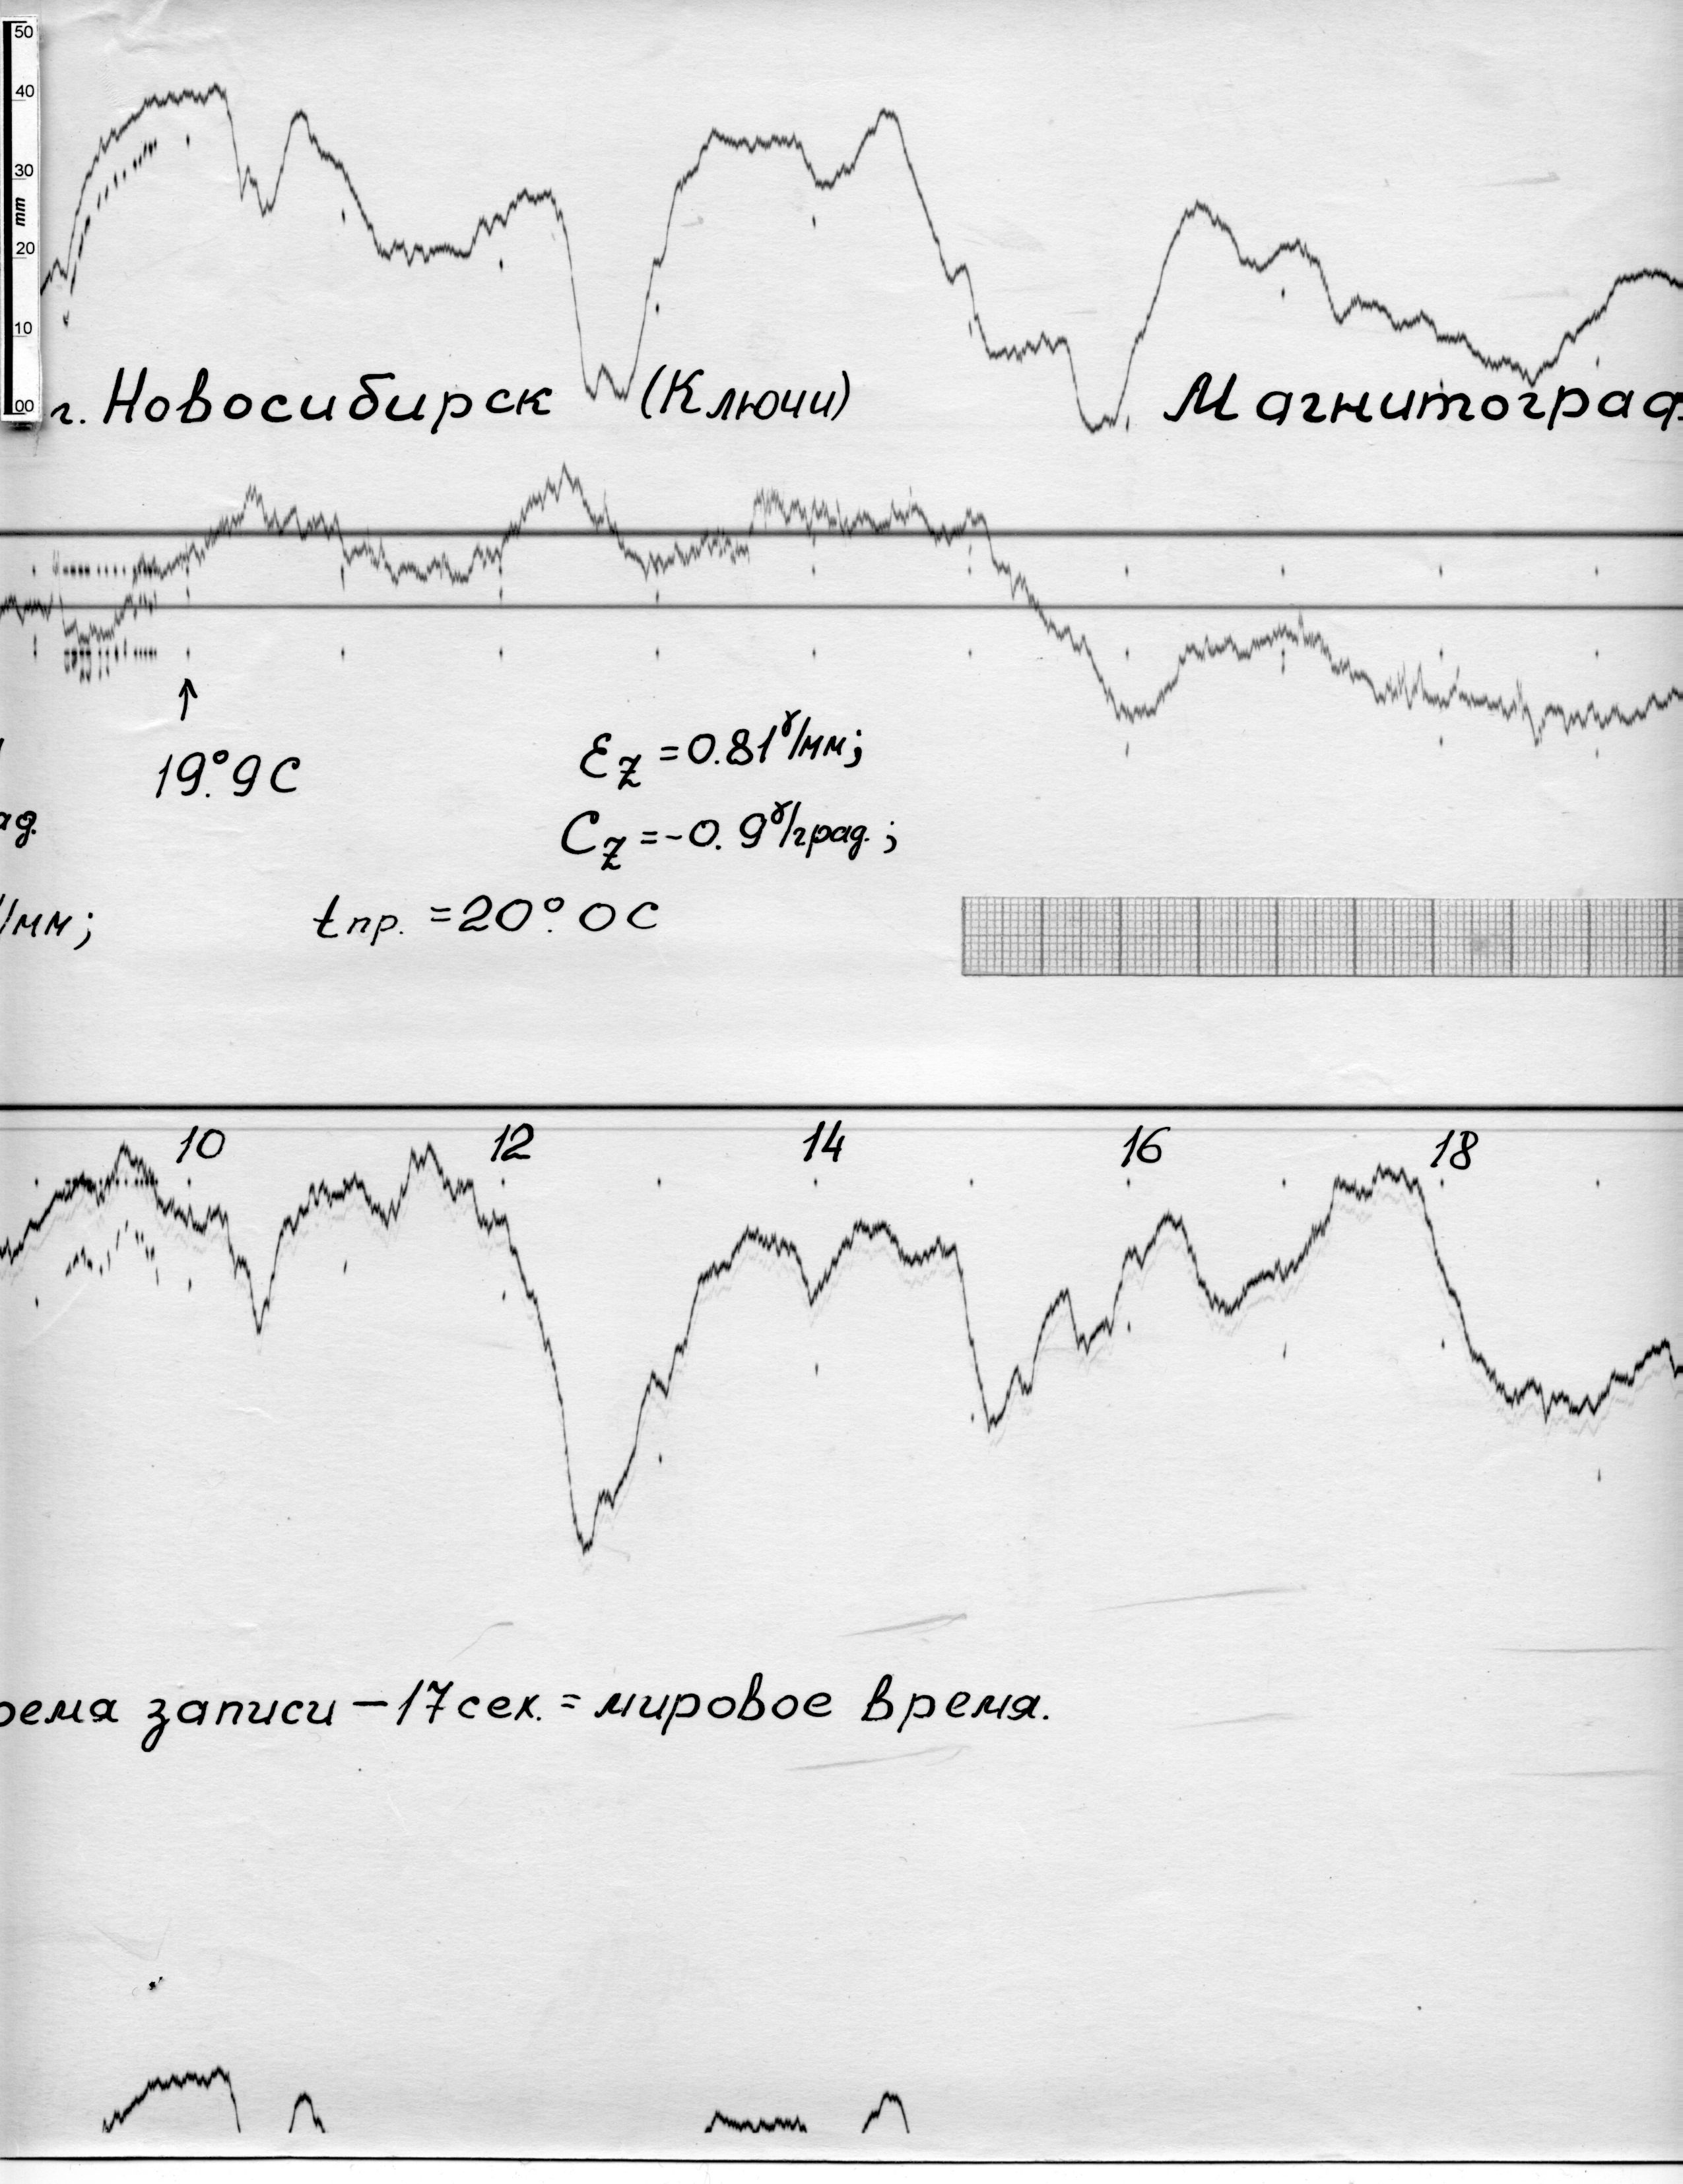 50
40
30
mm
20
10
00
г. Новосибирск (Ключи) Магнитограф
19°.9С
εz = 0.81γ/мм;
ад.
Cz = -0.9γ/град.;
/мм;
tпр. = 20°.0С
10 12 14 16 18
ремя записи – 17 сек. = мировое время.